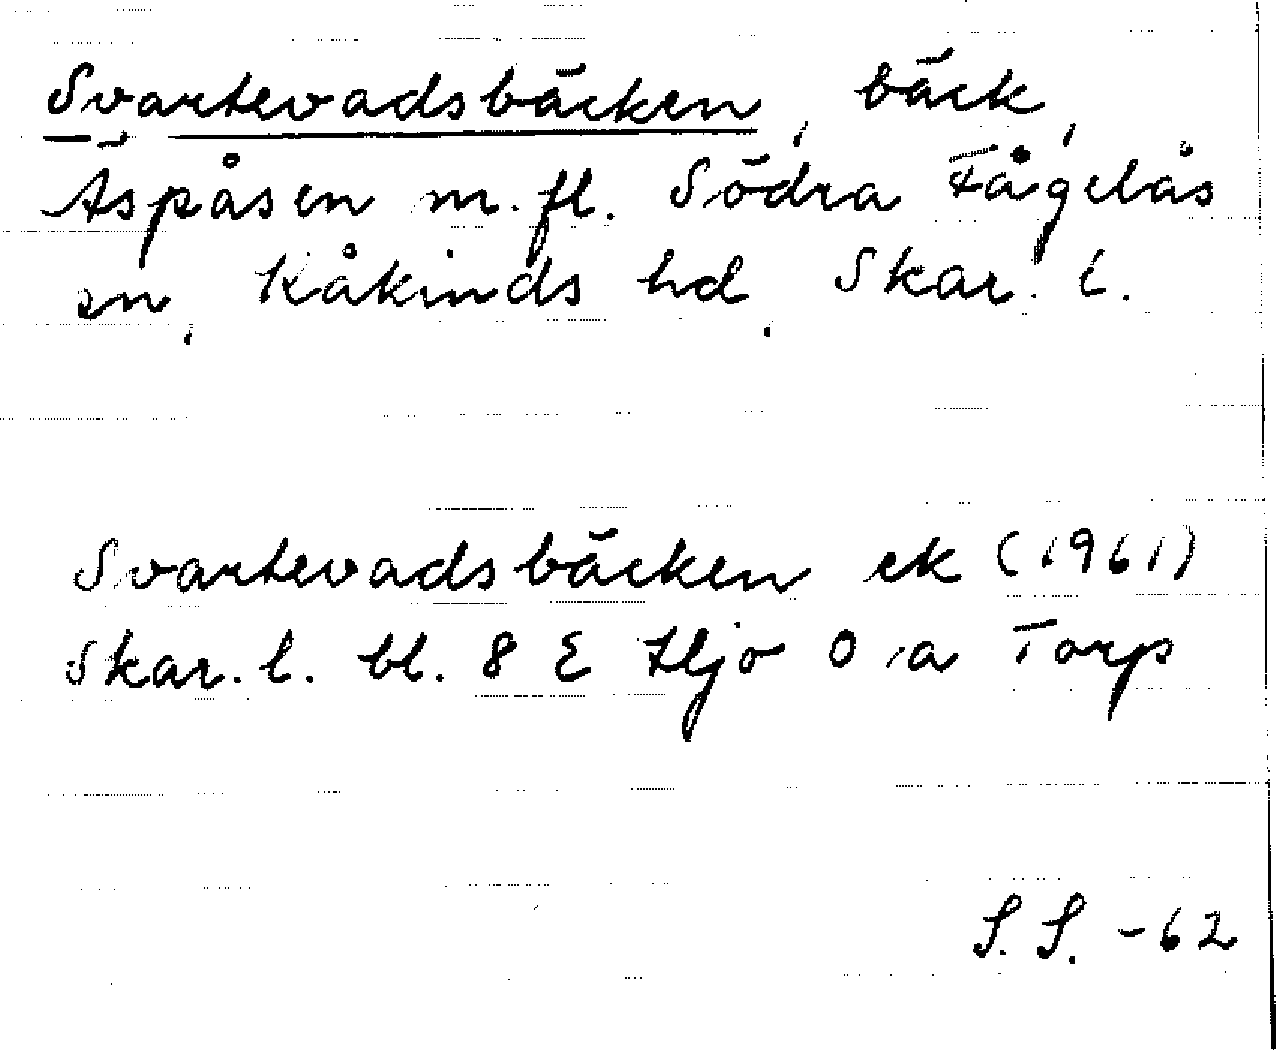 Svartevadsbäcken, bäck,
Äspåsen m.fl. Södra Fågelås
sn, Kåkinds hd, Skar. l.
Svartevadsbäcken ek (1961)
Skar. l. bl. 8 E Hjo 0 a Torp
S. S. -62